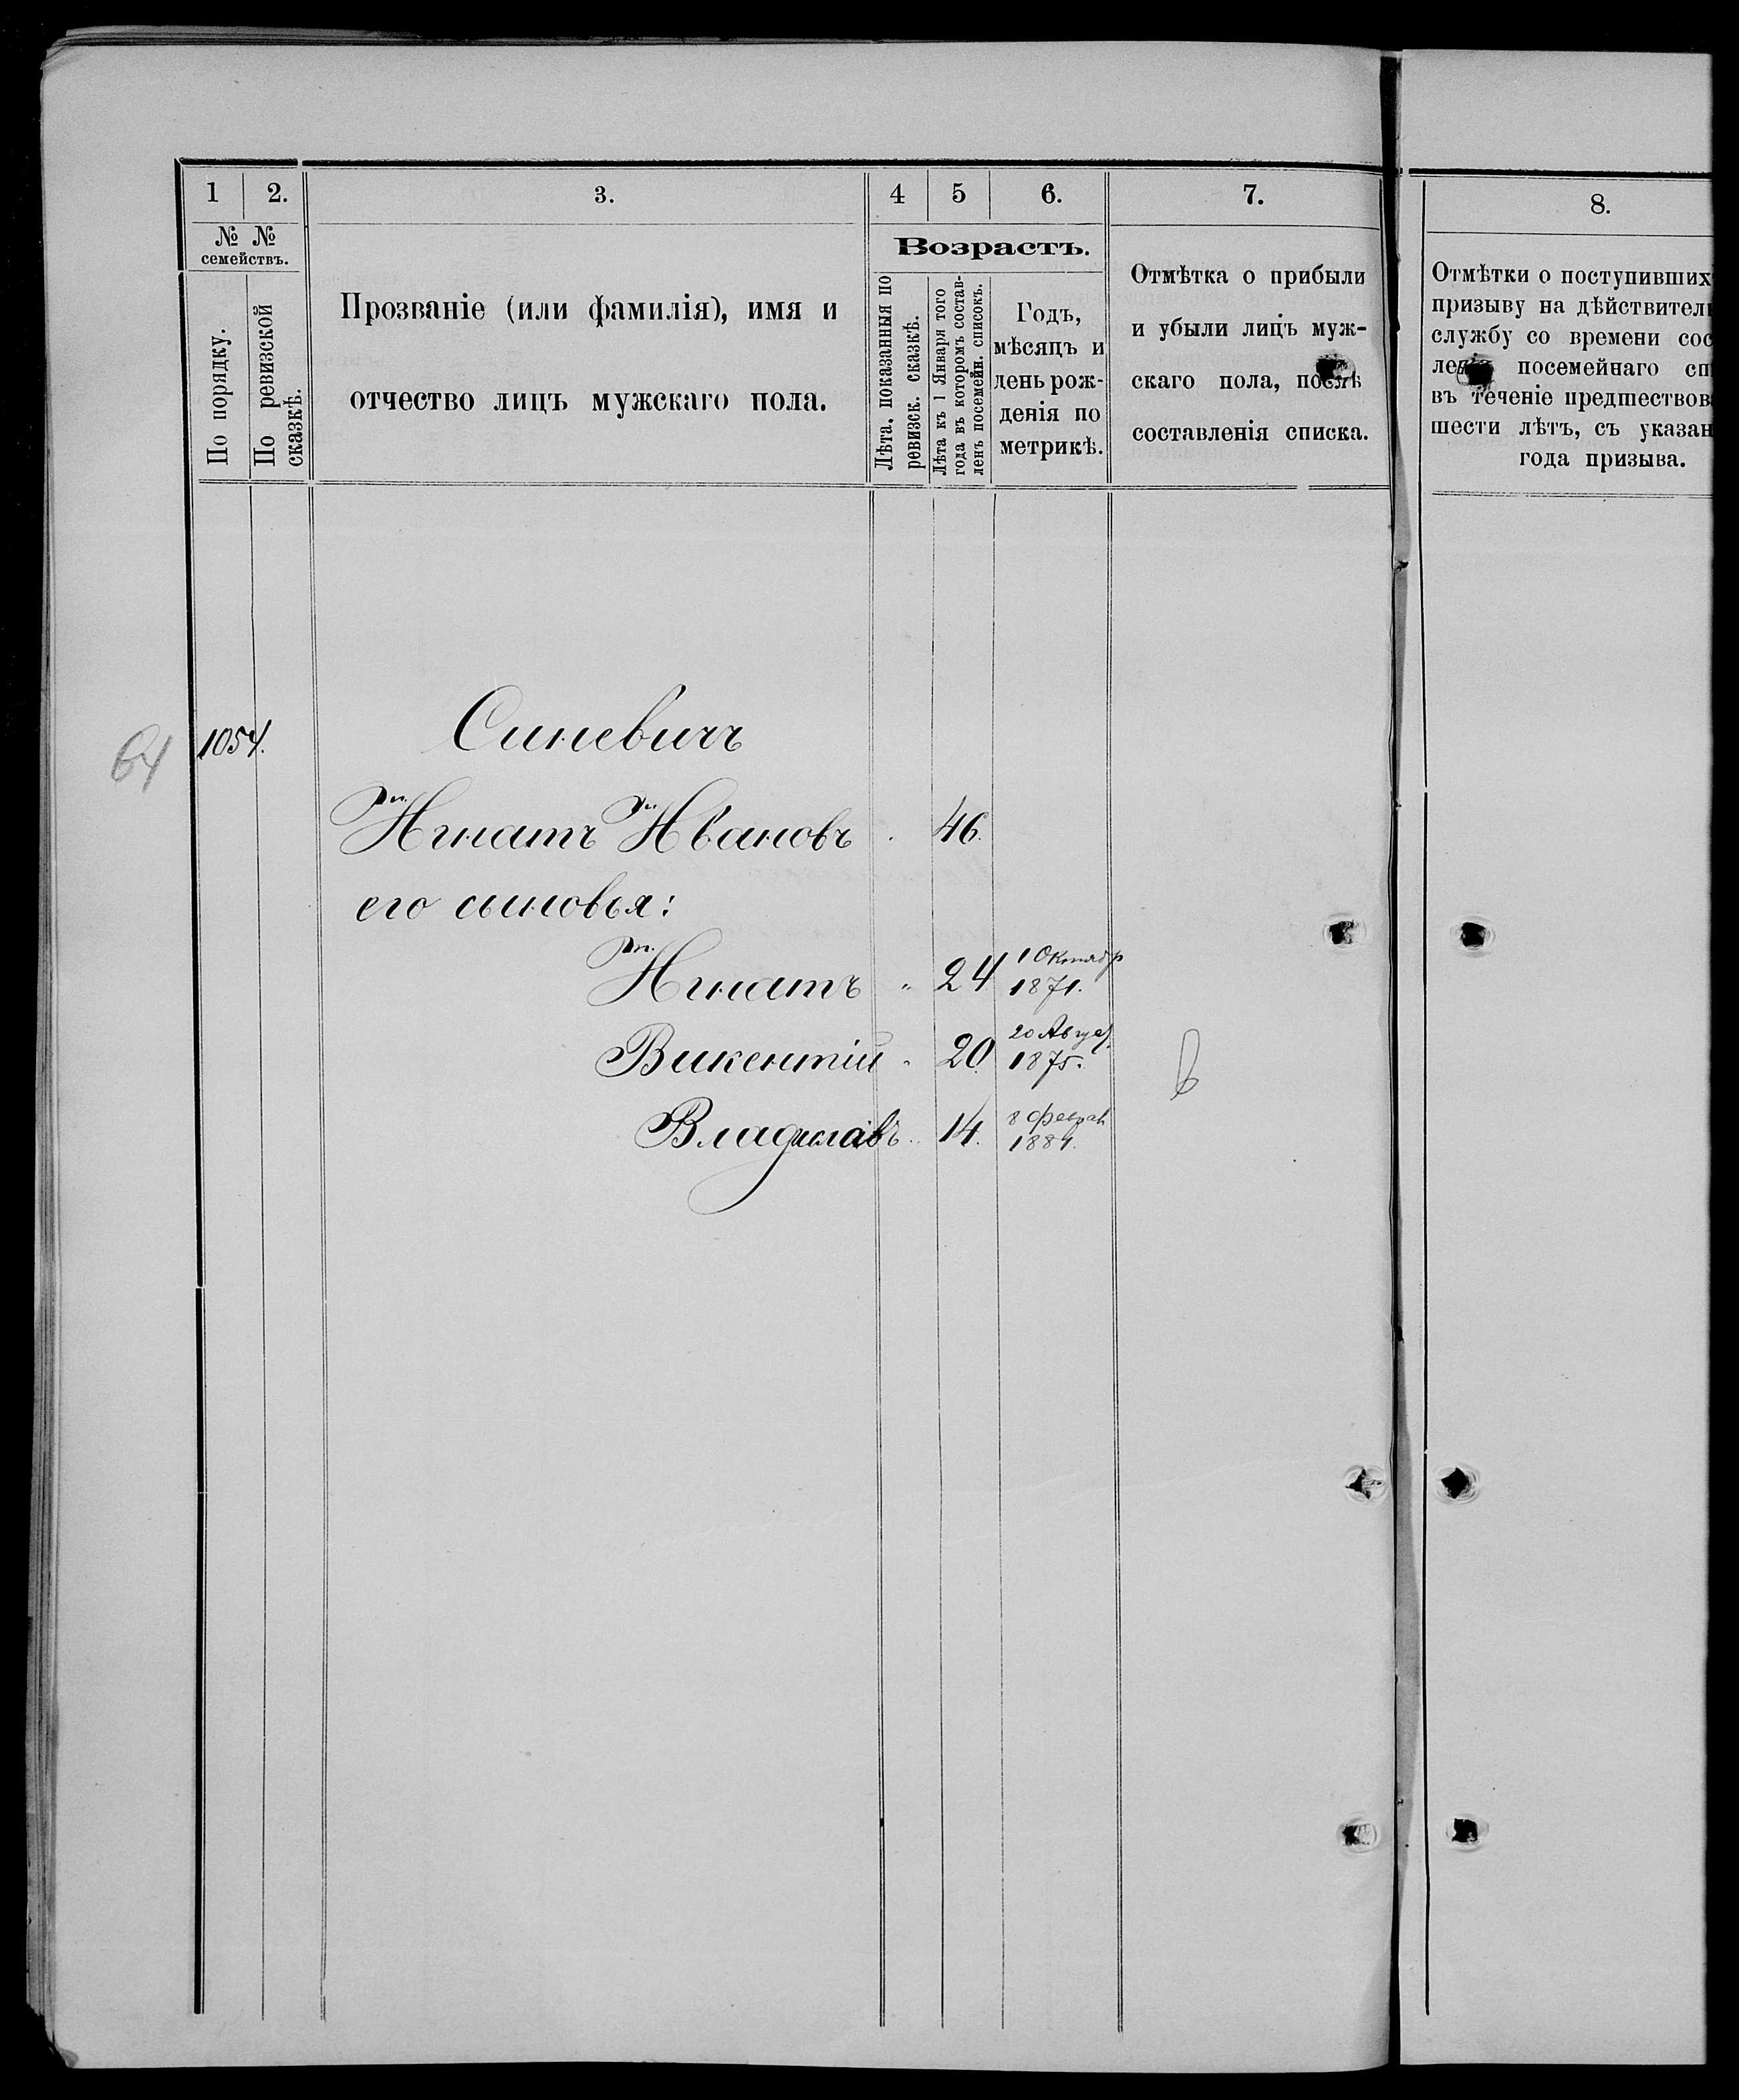 1
2.
3.
4
5
6.
7.
8.
№ №
семействъ.
По порядку.
По ревизской
сказкѣ.
Прозваніе (или фамилія), имя и
отчество лицъ мужскаго пола.
Возрастъ.
Лѣта, показанныя по
ревизск. сказкѣ.
Лѣта къ 1 Января того
года въ которомъ состав-
ленъ посемейн. списокъ.
Годъ,
мѣсяцъ и
день рож-
денія по
метрикѣ.
Отмѣтка о прибыли
и убыли лицъ муж-
скаго пола, послѣ
составленія списка.
Отмѣтки о поступивших
призыву на дѣйствител
службу со времени сос
леніи посемейнаго сп
въ теченіе предшествов
шести лѣтъ, съ указан
года призыва.
64
1054.
Синевичъ
Игнатъ Ивановъ 46.
его сыновья:
Игнатъ „ 24 1 Октябр
1871.
Викентій „ 20. 20 Август.
1875.
Владиславъ „ 14. 8 Феврал
1881.